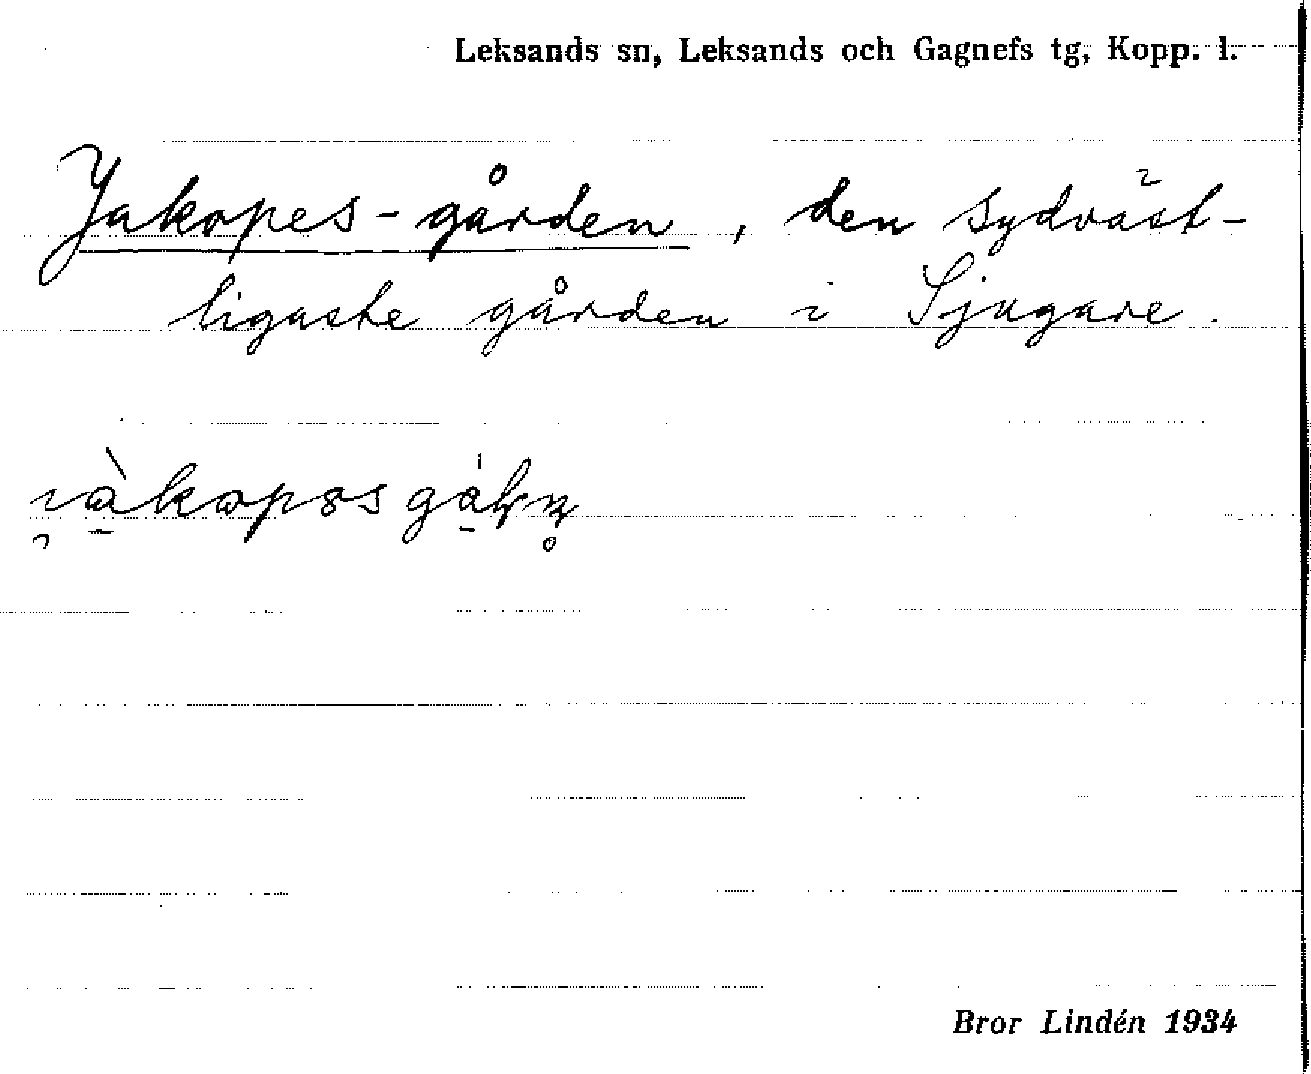 Leksands sn, Leksands och Gagnefs tg, Kopp. l.
Jakopes-gården, den sydväst-
ligaste gården i Sjugare.
Bror Lindén 1934